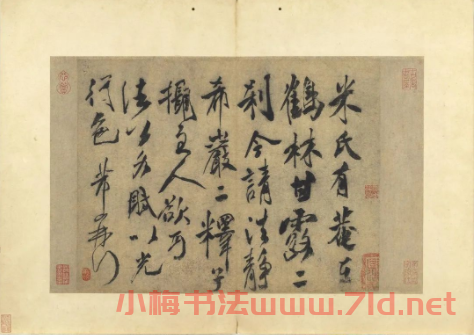 米氏有菴在
鶴林甘露二
刹今請法靜
希巖二釋子
攝主人欲丐
公為賦以光
行色 芾再拜
小梅书法www.7ld.net